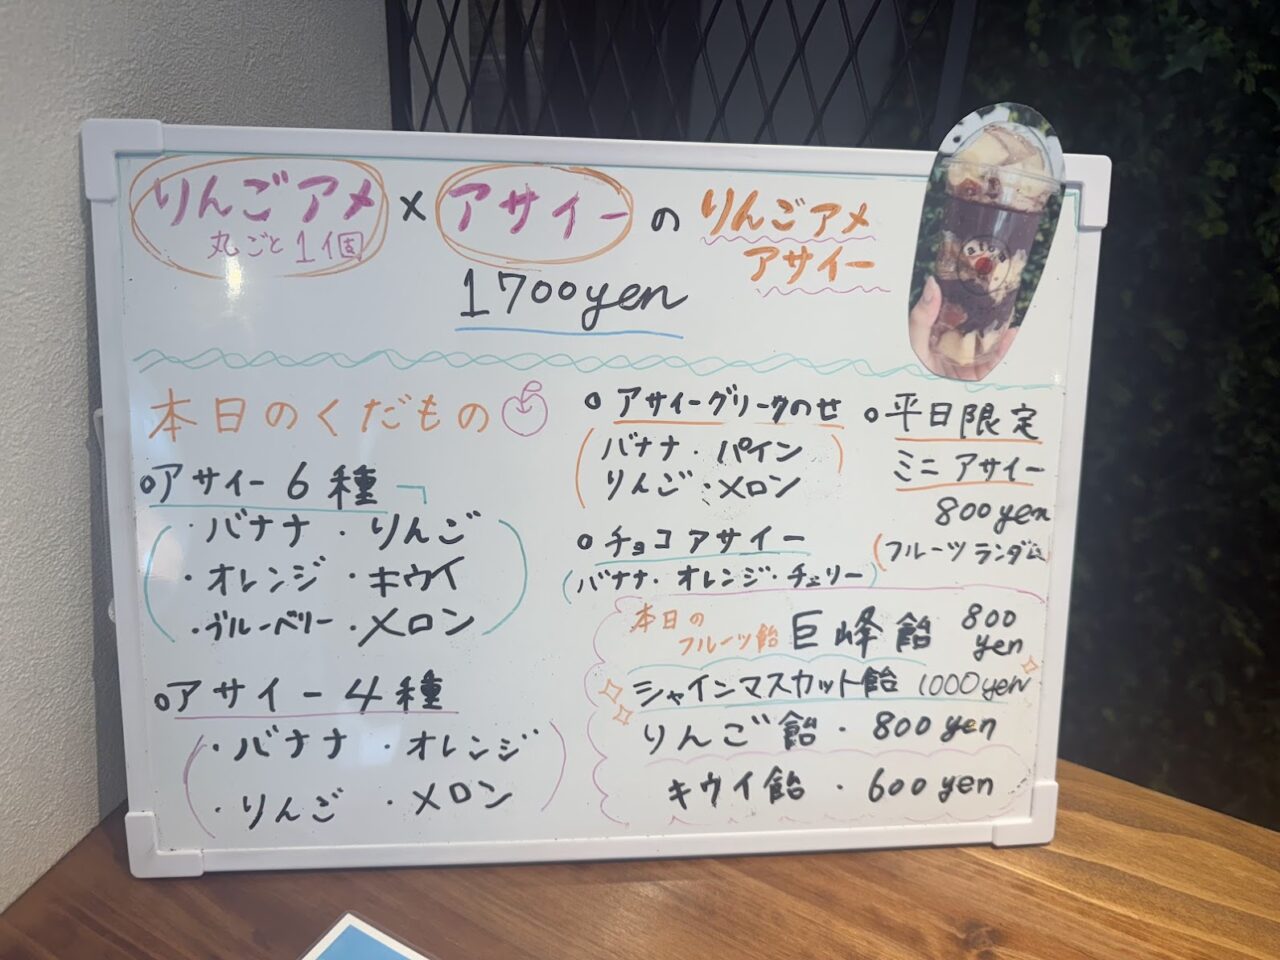 りんごアメ × アサイー の りんごアメ
丸ごと1個
アサイー
1700yen
本日のくだもの
アサイー6種
・バナナ ・りんご
・オレンジ ・キウイ
・ブルーベリー ・メロン
アサイー4種
・バナナ ・オレンジ
・りんご ・メロン
アサイーグリークのせ
バナナ・パイン
りんご・メロン
チョコアサイー
(バナナ・オレンジ・チェリー)
平日限定
ミニアサイー
800yen
(フルーツランダム)
本日の
フルーツ飴
巨峰飴 800
yen
シャインマスカット飴 1000yen
りんご飴・800yen
キウイ飴・600yen